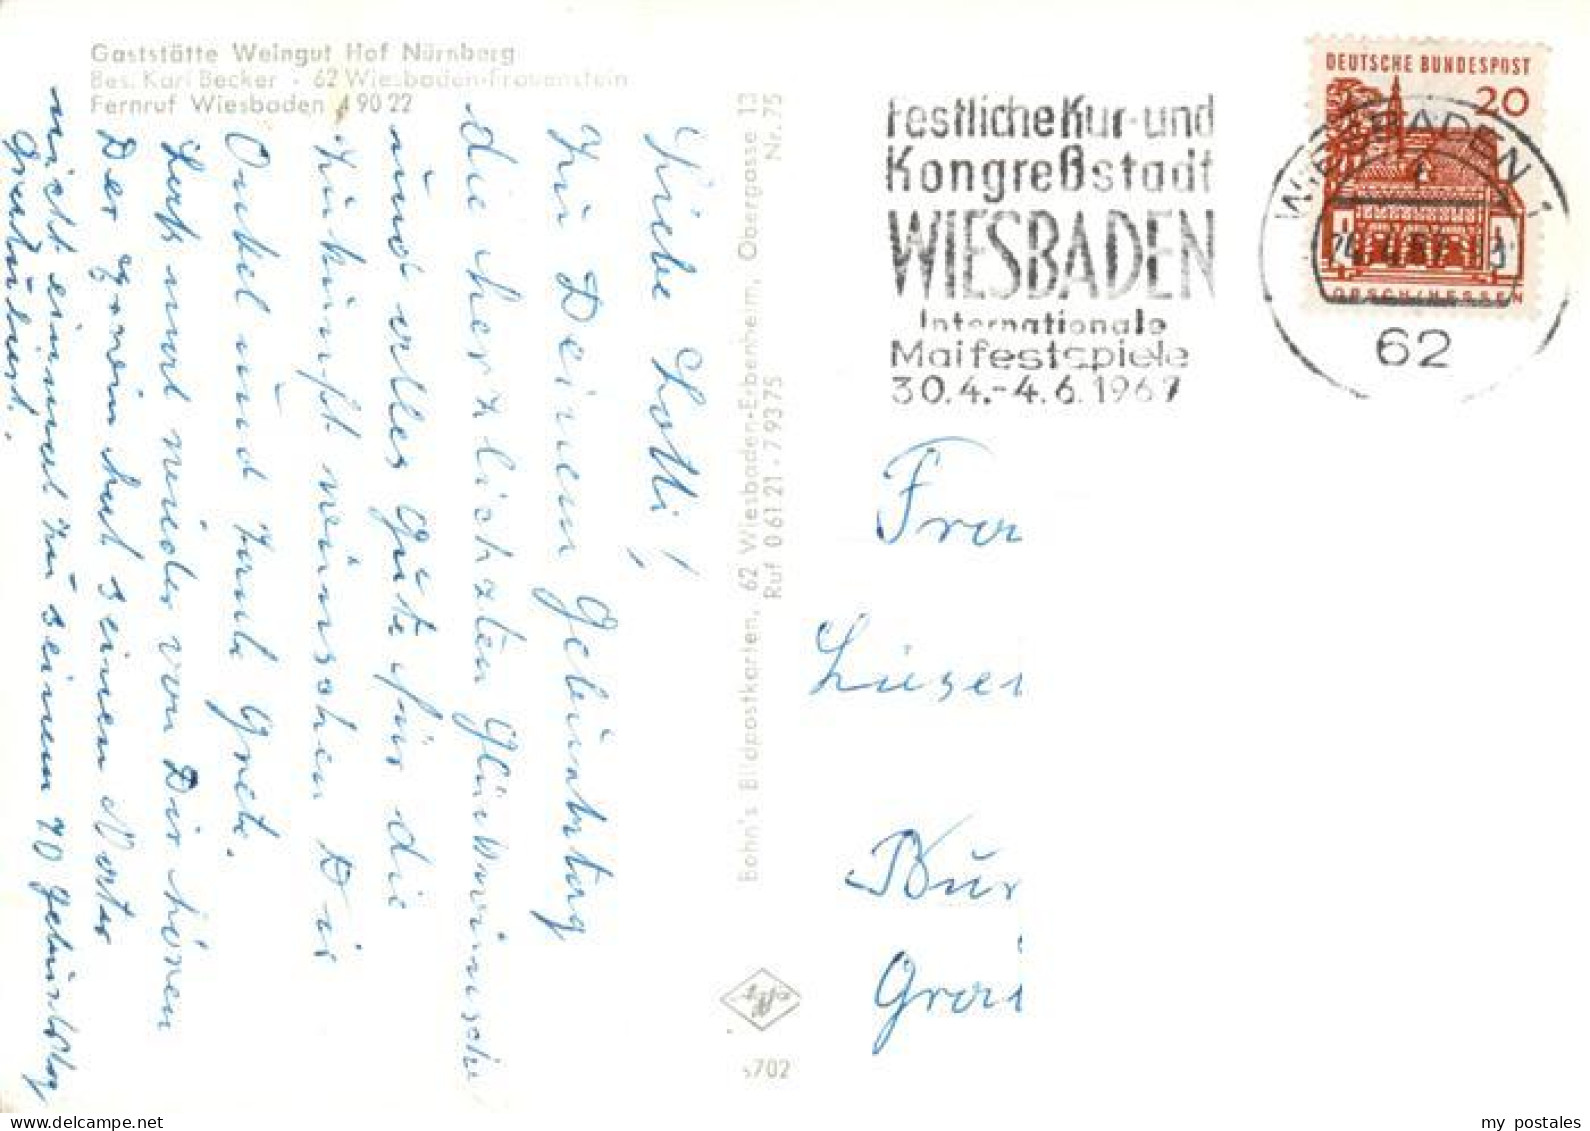 Gaststätte Weingut Hof Nürnberg
Bes. Karl Becker · 62 Wiesbaden-Frauenstein
Fernruf Wiesbaden 4 90 22
Liebe Lotti!
Zu Deinem Geburtstag
die herzlichsten Glückwünsche
und alles Gute für die
Zukunft wünschen Dir
Onkel und Tante Grete.
Lass mal wieder von Dir hören
Der hat seinen Vater
nicht einmal zu seinem 70 Geburtstag
Gratuliert.
Bohn's Bildpostkarten, 62 Wiesbaden-Erbenheim, Obergasse 13
Ruf 0 61 21 · 7 93 75 Nr. 75
5702
Festliche Kur- und
Kongreßstadt
WIESBADEN
Internationale
Maifestspiele
30.4.-4.6.1967
DEUTSCHE BUNDESPOST
20
LORSCH/HESSEN
WIESBADEN 1
62
Frau
Bur
my postales